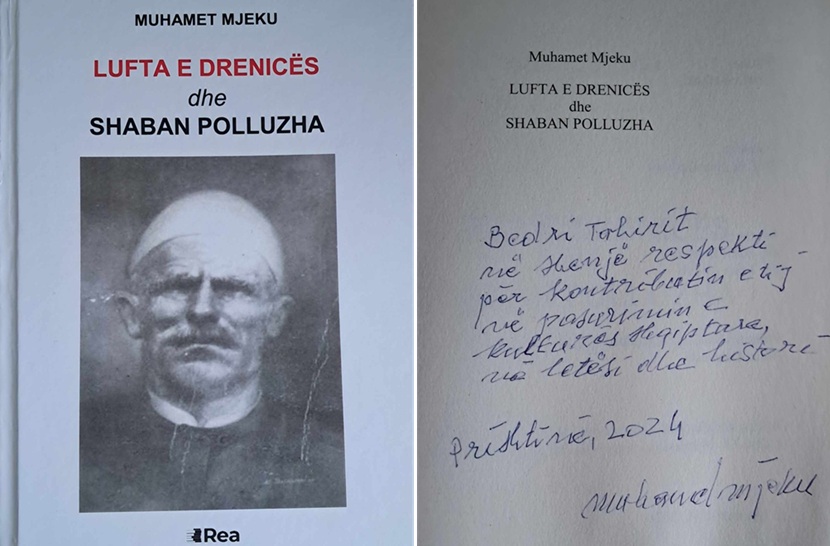 MUHAMET MJEKU
LUFTA E DRENICËS
dhe
SHABAN POLLUZHA
Rea
Muhamet Mjeku
LUFTA E DRENICËS
dhe
SHABAN POLLUZHA
Bedri Tahirit
në shenjë respekti
për kontributin e tij
në pasurimin e
kulturës shqiptare,
në letësi dhe histori
Prishtinë, 2024
muhamet mjeku